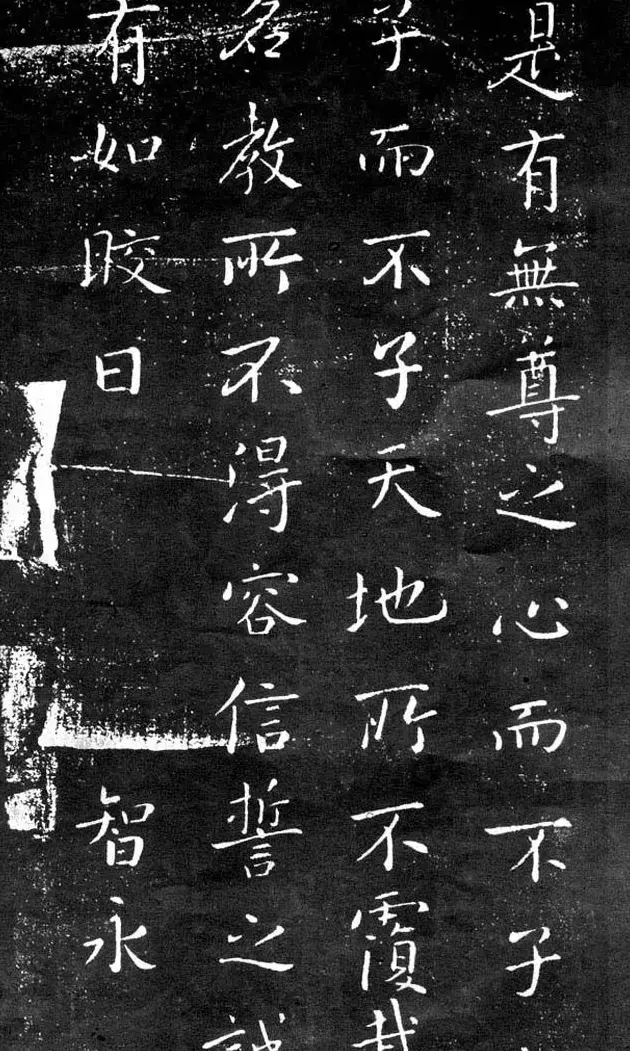 是有無尊之心而不子
子而不子天地所不覆載
名教所不得容信誓之誠
有如晈日
智永